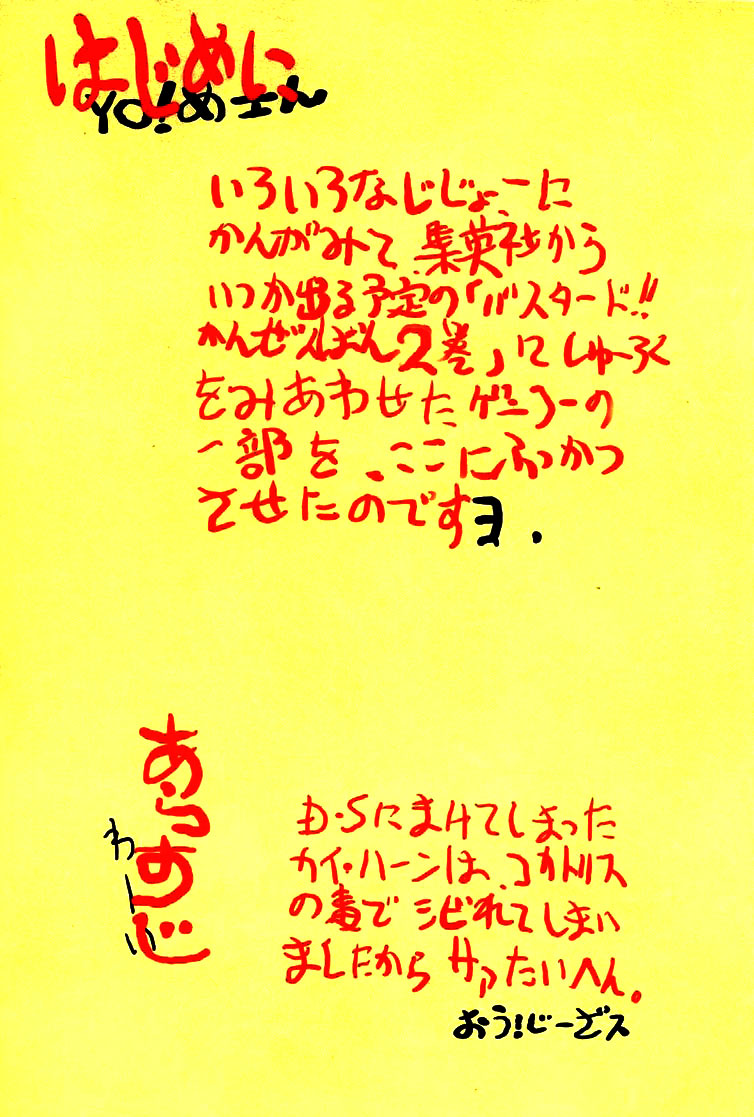 はじめに
YO!めーん
いろいろなじじょーに
かんがみて、集英社から
いつか出る予定の「バスタード!!
かんぜんばん2巻」にしゅーろく
をみあわせたゲンコーの
一部を、ここにふっかつ
させたのですヨ.
あらすじ
D・Sにまけてしまった
カイ・ハーンは、コカトリス
の毒でシビれてしまい
ましたからサアたいへん。
おう!じーざス